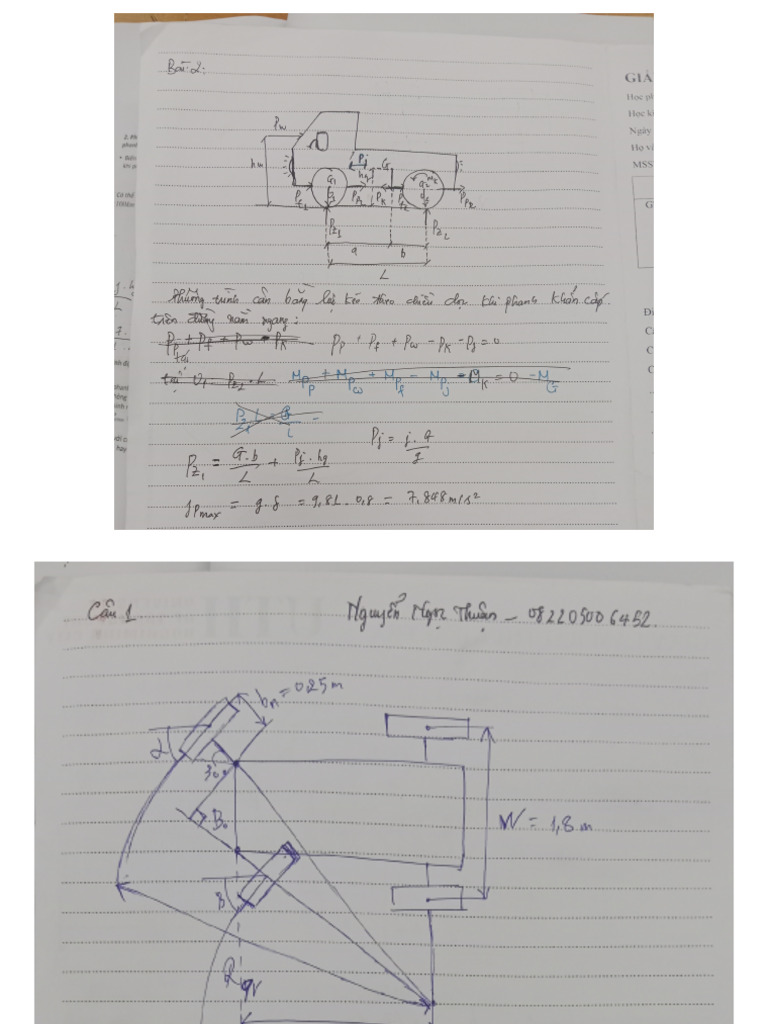 Bài 2:
GIẢ
Học ph
Học k
Ngày
Họ v
MSS
Pw
hw
Pj
G
hg
G1
Pf1
PK
Pz1
Pz2
a
b
L
Phương trình cân bằng lực kéo theo chiều dọc khi phanh khẩn cấp
trên đường nằm ngang:
Pp + Pf + Pw = PK Pp + Pf + Pw - PK - Pj = 0
tại O1 Pz2 . L MPp + MPw + MPf - MPj - MK = 0 - MG
Pj = j.G/g
Pz1 = G.b/L + Pj.hg/L
jpmax = g.δ = 9,81 . 0,8 = 7,848 m/s²
Câu 1 Nguyễn Ngọc Thuận - 082205006452.
bn = 025 m
α
30°
B0
W = 1,8 m
β
Rqv